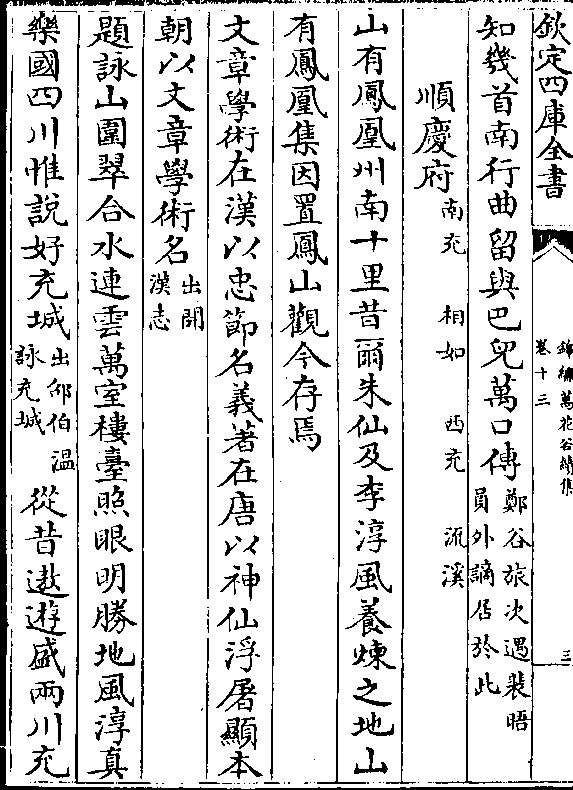 欽定四庫全書
錦繡萬花谷續集
卷十三
三
知幾首南行曲留與巴兒萬口傳鄭谷旅次遇裴晤員外謫居於此
順慶府南充 相如 西充 流溪
山有鳳凰州南十里昔爾朱仙及李淳風養煉之地山
有鳳凰集因置鳳山觀今存焉
文章學術在漢以忠節名義著在唐以神仙浮屠顯本
朝以文章學術名出開漢志
題詠山圍翠合水連雲萬室樓臺照眼明勝地風淳真
樂國四川惟說好充城出邵伯溫詠充城 從昔遨遊盛兩川充